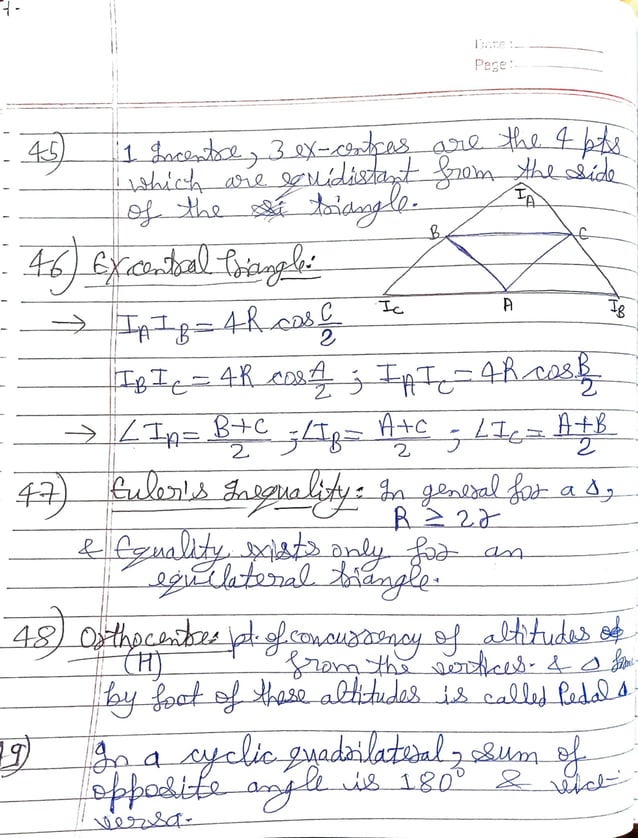 Date :
Page :
45) 1 Incentre, 3 ex-centres are the 4 pts
which are equidistant from the side
of the triangle.
I_A
B C
I_C A I_B
46) Excentral Triangle:
→ I_A I_B = 4R cos C/2
I_B I_C = 4R cos A/2 ; I_A I_C = 4R cos B/2
→ ∠I_A = B+C/2 ; ∠I_B = A+C/2 ; ∠I_C = A+B/2
47) Euler's Inequality: In general for a Δ,
R ≥ 2r
& Equality exists only for an
equilateral triangle.
48) Orthocentre: pt. of concurrency of altitudes
(H) from the vertices. & Δ
by foot of these altitudes is called Pedal Δ
9) In a cyclic quadrilateral, sum of
opposite angle is 180° & vice-
versa.